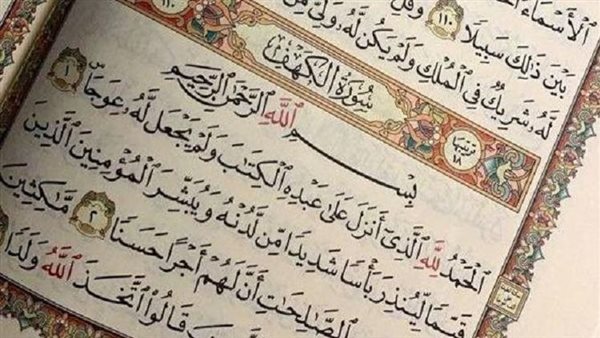 ٱلْأَسْمَآءُ
بَيْنَ ذَٰلِكَ سَبِيلًا ١١٠ وَقُلِ
لَّهُۥ شَرِيكٌ فِى ٱلْمُلْكِ وَلَمْ يَكُن لَّهُۥ وَلِىٌّ مِّنَ
ترتيبها ١٨ سُورَةُ ٱلْكَهْفِ ١١٠
بِسْمِ ٱللَّهِ ٱلرَّحْمَٰنِ ٱلرَّحِيمِ
ٱلْحَمْدُ لِلَّهِ ٱلَّذِىٓ أَنزَلَ عَلَىٰ عَبْدِهِ ٱلْكِتَٰبَ وَلَمْ يَجْعَل لَّهُۥ عِوَجَاۜ ١
قَيِّمًا لِّيُنذِرَ بَأْسًا شَدِيدًا مِّن لَّدُنْهُ وَيُبَشِّرَ ٱلْمُؤْمِنِينَ ٱلَّذِينَ
ٱلصَّٰلِحَٰتِ أَنَّ لَهُمْ أَجْرًا حَسَنًا ٢ مَّٰكِثِينَ
قَالُوا۟ ٱتَّخَذَ ٱللَّهُ وَلَدًا